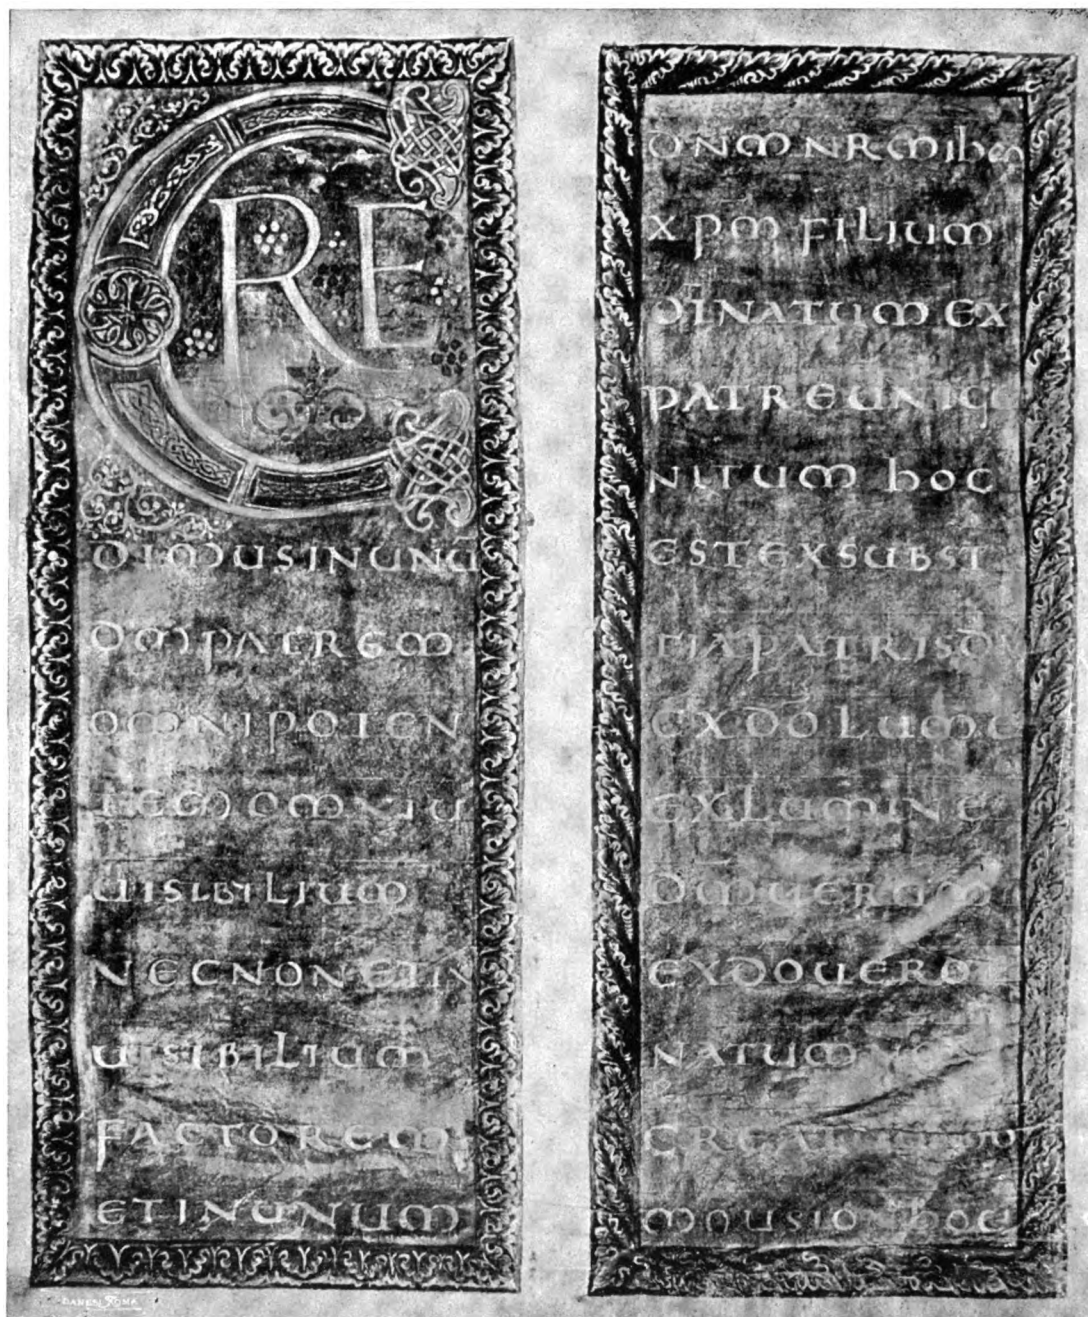 CRE
DIMUSINUNŪ
D̄M̄PATREM
OMNIPOTEN
TEMOMNIŪ
UISIBILIUM
NECNONETIN
UISIBILIUM
FACTOREM
ETINUNUM
D̄N̄M̄N̄R̄M̄IH̄S
XP̄M̄FILIUM
D̄INATUMEX
PATREUNIGE
NITUMHOC
ESTEXSUBST
TIAPATRISD̄M̄
EXD̄OLUME
EXLUMINE
D̄M̄UERUM
EXD̄OUERO
NATUM
MOUSIOHOC
DANESI ROMA